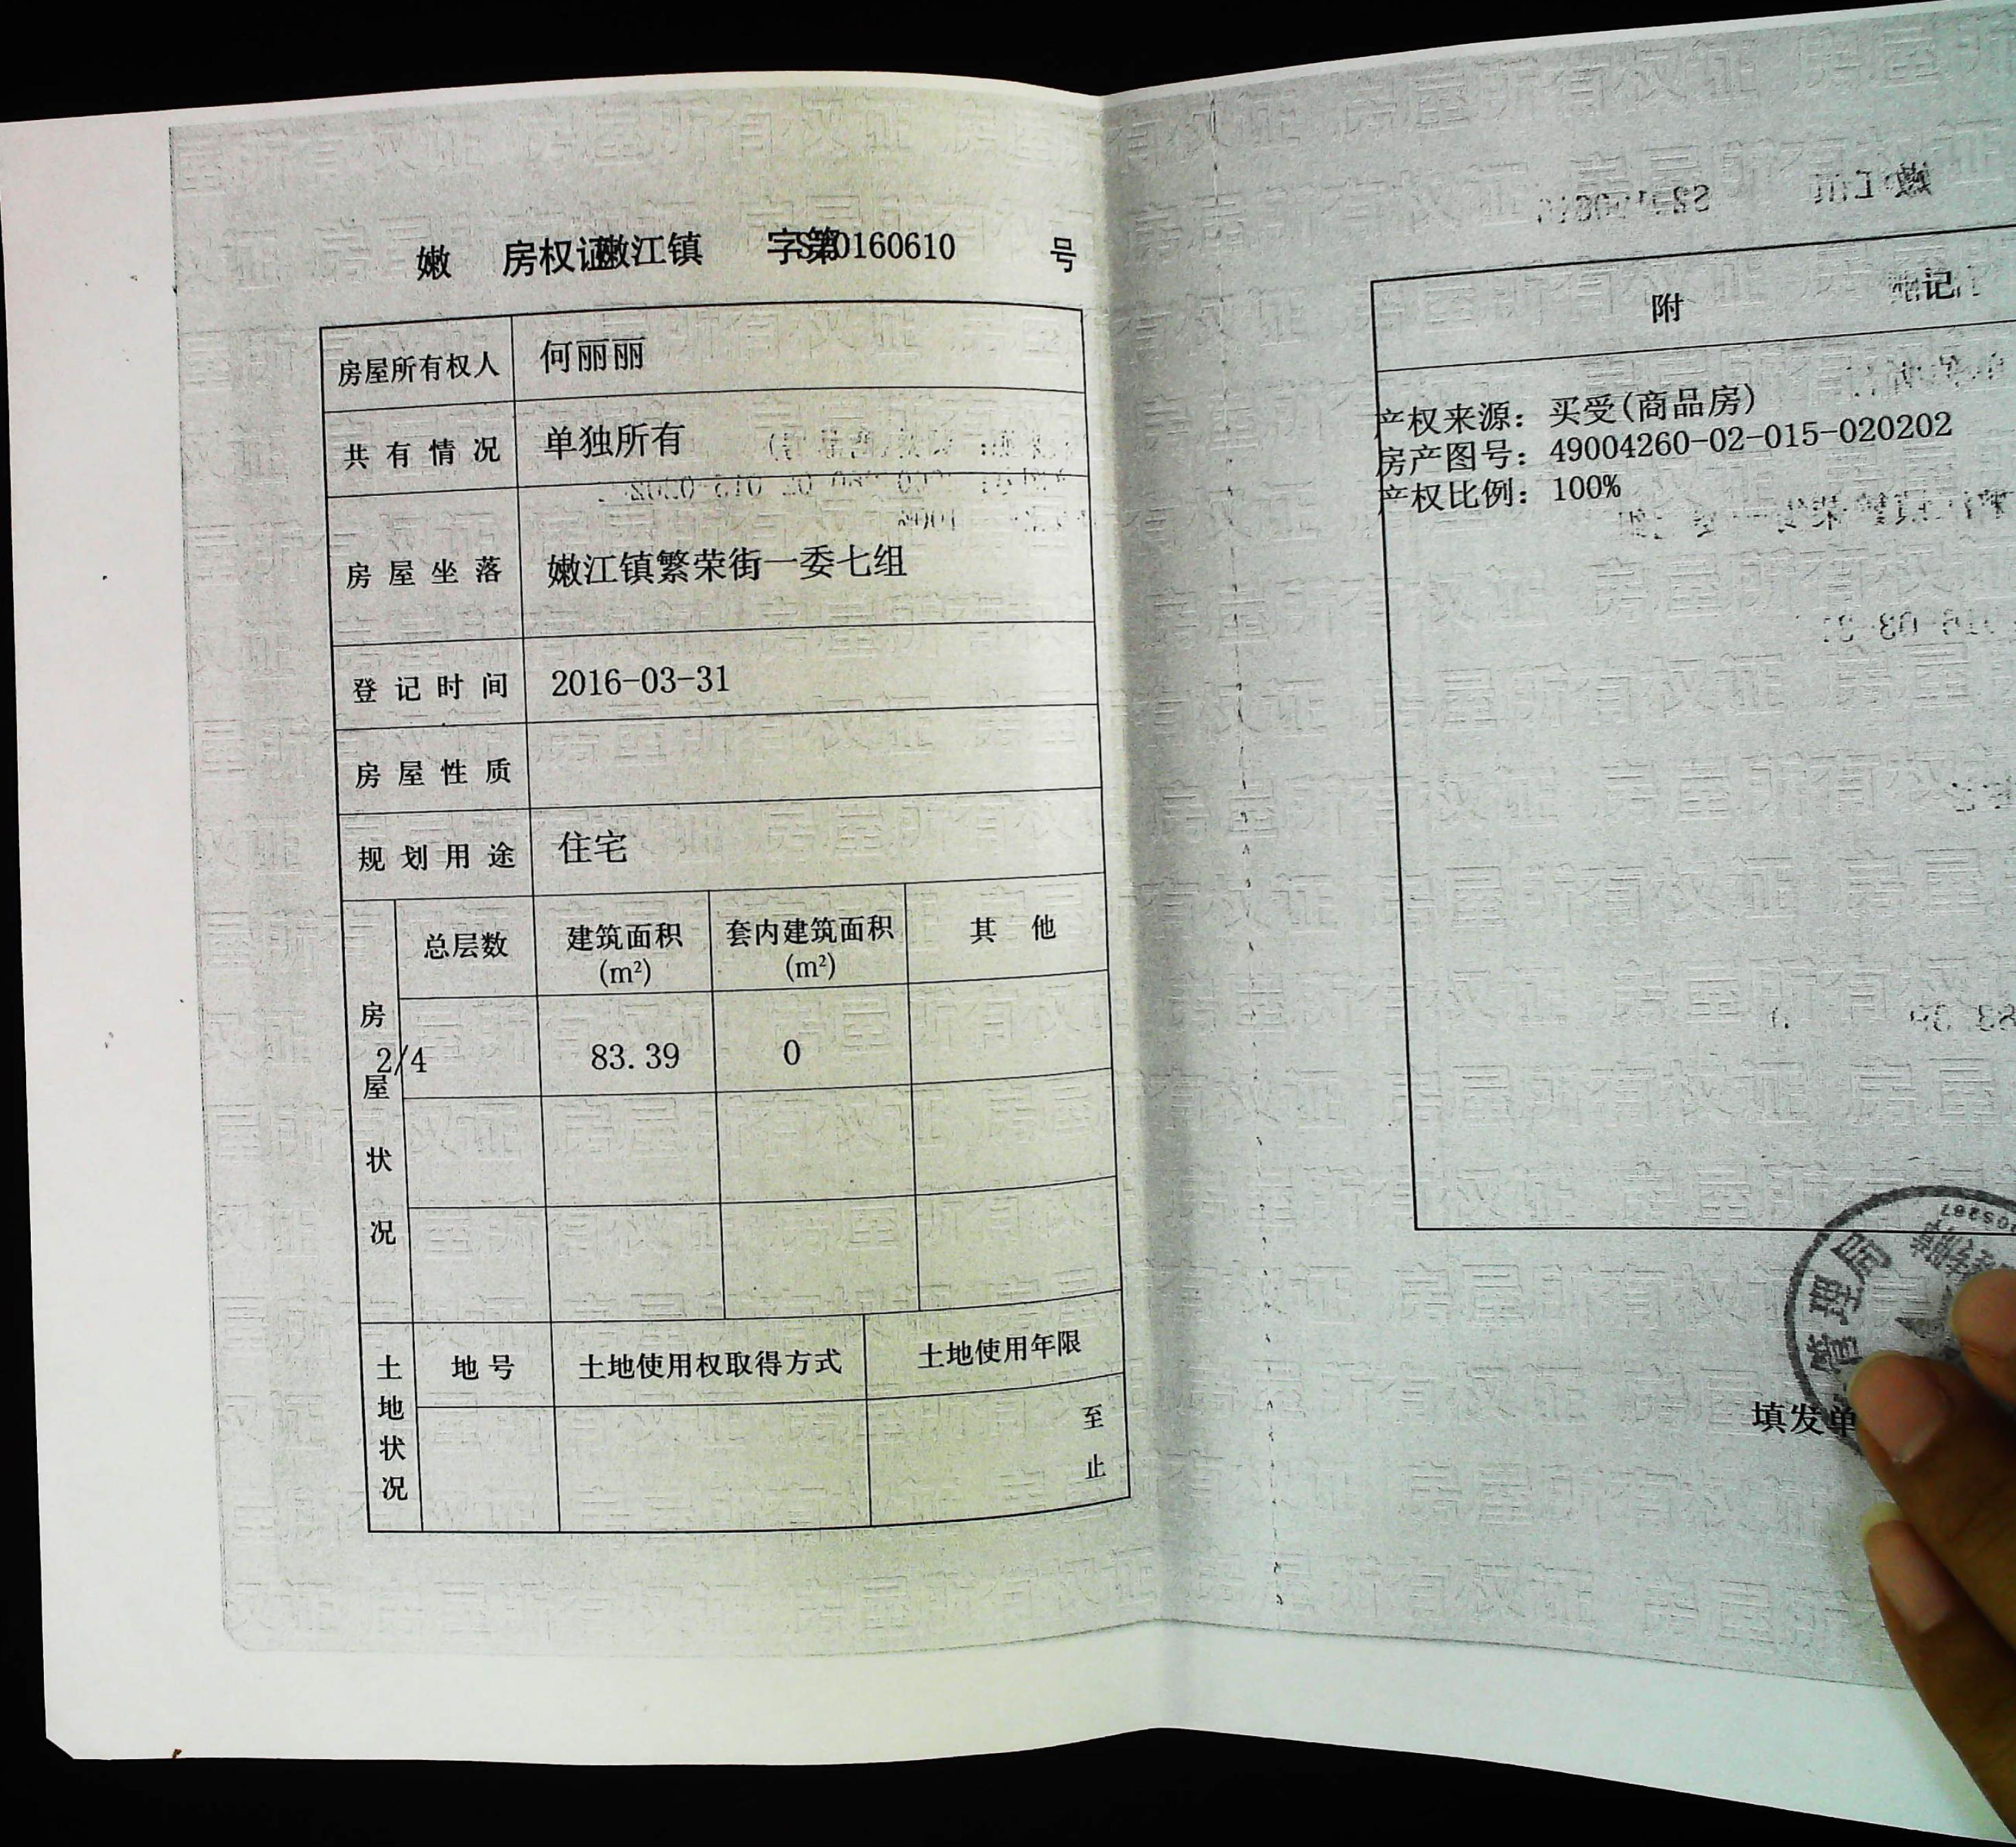 嫩 房权证嫩江镇 字第S20160610 号
房屋所有权人 何丽丽
共有情况 单独所有
房屋坐落 嫩江镇繁荣街一委七组
登记时间 2016-03-31
房屋性质
规划用途 住宅
房屋状况
总层数 建筑面积(m²) 套内建筑面积(m²) 其他
2/4 83.39 0
土地状况
地号 土地使用权取得方式 土地使用年限
至
止
附 记
产权来源：买受(商品房)
房产图号：49004260-02-015-020202
产权比例：100%
管理局
填发单